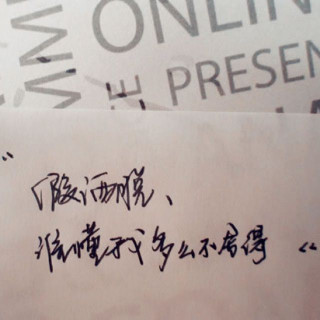 ONLIN
WW
E
PRESEN
"假洒脱、
谁懂我多么不舍得 "